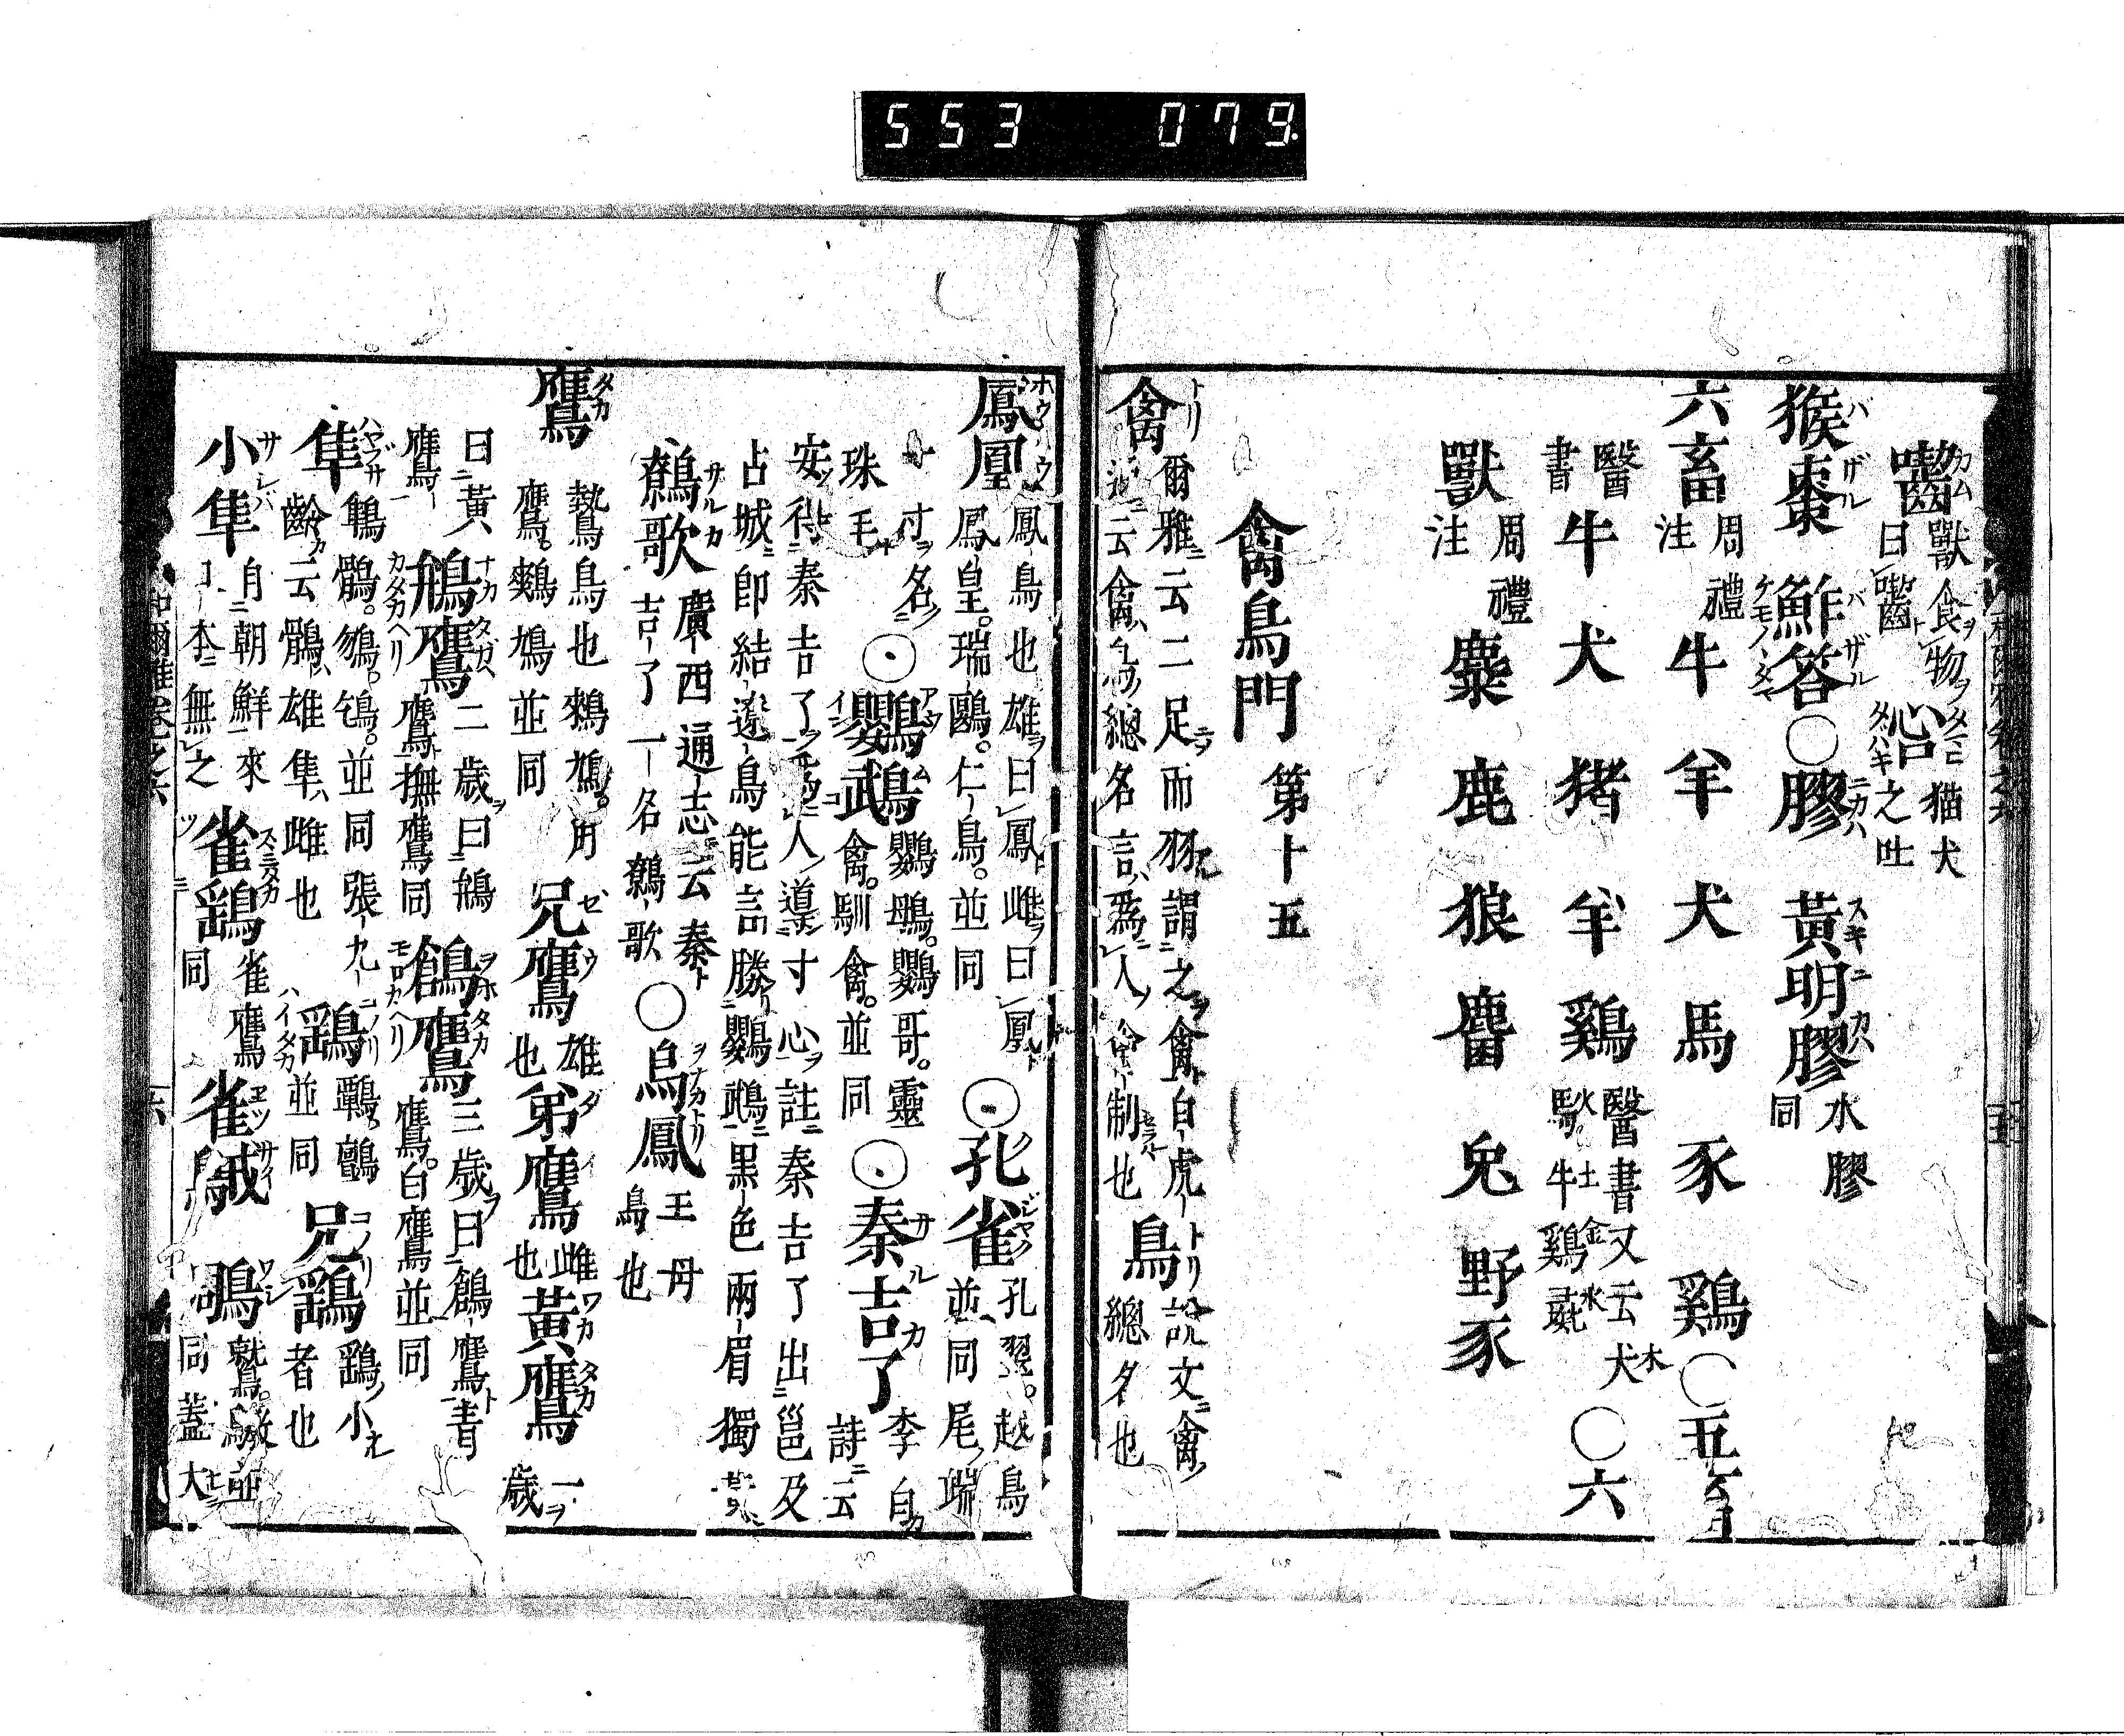 553 079
齛 獸食物曰齛 㕡 猫犬之吐
猴棗 鮓答〇膠 黃明膠 水膠同
六畜 周禮注 牛 羊 犬 馬 豕 鷄〇五畜
醫書 牛 犬 猪 羊 鷄 醫書又云犬木 火馬 土牛 金鷄 水彘〇六
獸 周禮注 麋 鹿 狼 麕 兔 野豕
禽鳥門 第十五
禽 爾雅云二足而羽謂之禽白虎通云禽鳥獸總名言爲人禽制也 鳥 說文禽總名也
鳳凰 鳳鳥也雄曰鳳雌曰凰鳳皇瑞鷗仁鳥並同 孔雀 孔翠越鳥並同尾端一寸名珠毛
鸚鵡 鸚䳇鸚哥靈禽馴禽並同 秦吉了 李白詩云安得秦吉了爲人導寸心註秦吉了出邕及占城即結遼鳥能言勝鸚鵡黑色兩眉獨黃
鷯歌 廣西通志云秦吉了一名鷯歌〇烏鳳 王母鳥也
鷹 鷙鳥也鷞鳩鷹鷞鳩並同
兄鷹 雄也 弟鷹 雌也 黃鷹 一歲曰黃鷹
鴘鷹 二歲曰鴘鷹撫鷹同 鶬鷹 三歲曰鶬鷹青鷹白鷹並同
隼 鶽鶻並同張九齡云鶻雄隼雌也 鷂 並同 兄鷂 鷂小者也
小隼 自朝鮮來日本無之 雀鷂 雀鷹同 雀𪀚 鵰 鷲並同蓋大
和爾雅卷之六 六